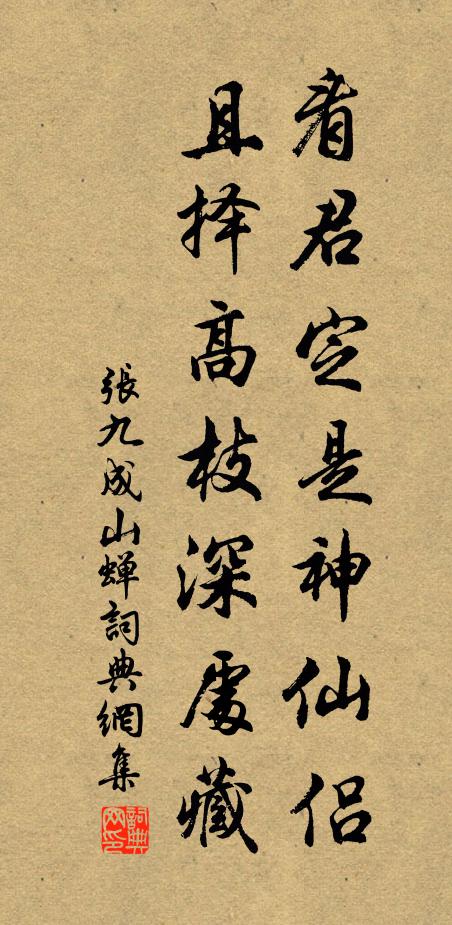 看君定是神仙侣
且择高枝深處藏
張九成山蝉詞典網集
詞典网印